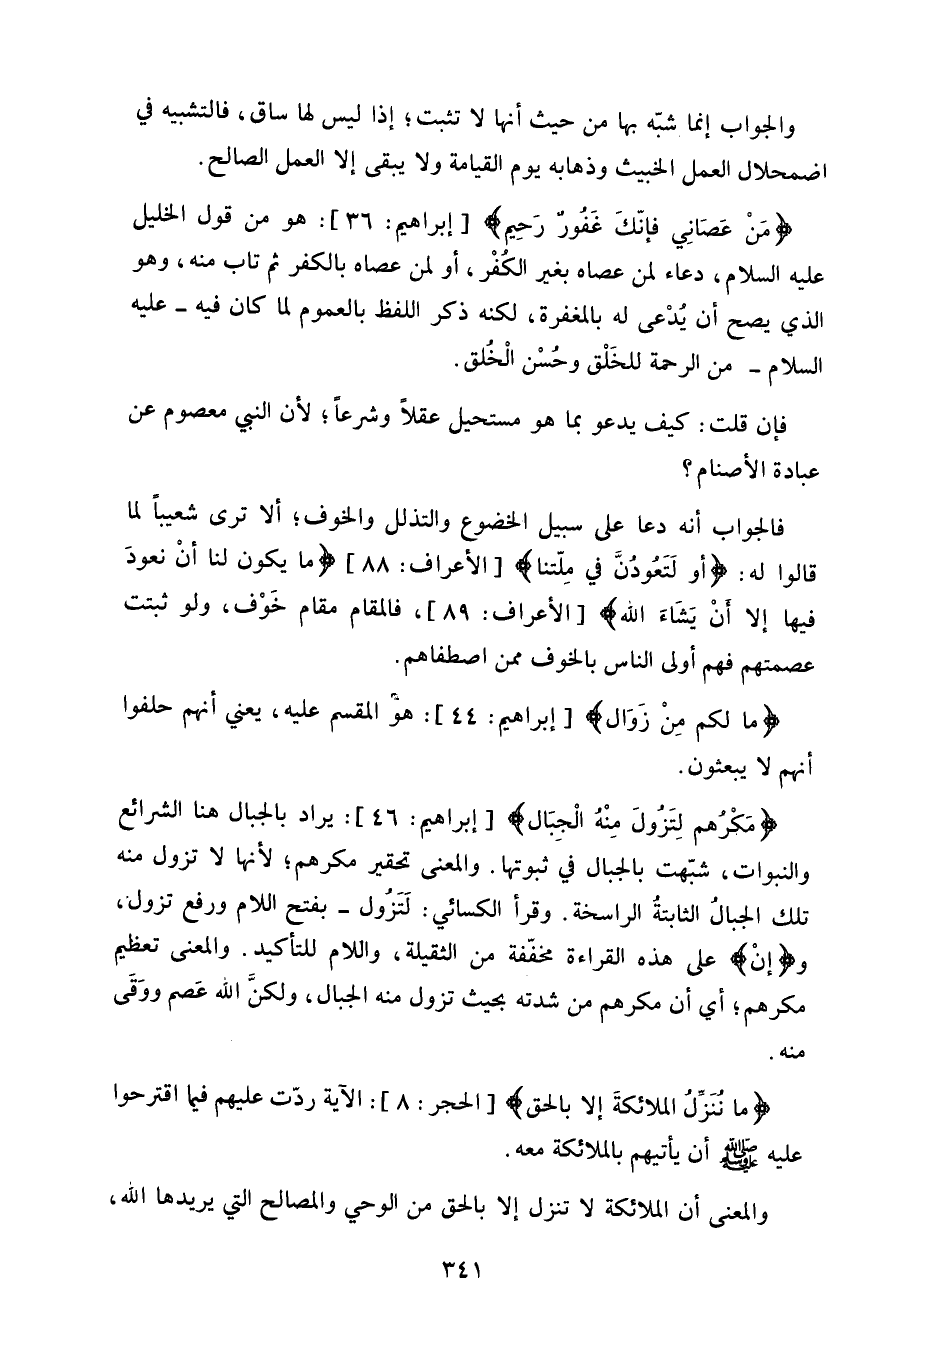 والجواب إنما شبّه بها من حيث أنها لا تثبت؛ إذا ليس لها ساق، فالتشبيه في
اضمحلال العمل الخبيث وذهابه يوم القيامة ولا يبقى إلا العمل الصالح.
﴿مَنْ عَصَاني فإنّكَ غَفُورٌ رَحِيم﴾ [إبراهيم: ٣٦]: هو من قول الخليل
عليه السلام، دعاء لمن عصاه بغير الكُفْر، أو لمن عصاه بالكفر ثم تاب منه، وهو
الذي يصح أن يُدْعى له بالمغفرة، لكنه ذكر اللفظ بالعموم لما كان فيه ــ عليه
السلام ــ من الرحمة للخَلْق وحُسْن الْخُلق.
فإن قلت: كيف يدعو بما هو مستحيل عقلاً وشرعاً؛ لأن النبي معصوم عن
عبادة الأصنام؟
فالجواب أنه دعا على سبيل الخضوع والتذلل والخوف؛ ألا ترى شعيباً لما
قالوا له: ﴿أو لَتَعُودُنَّ في مِلّتنا﴾ [الأعراف: ٨٨] ﴿ما يكون لنا أنْ نعودَ
فيها إلا أَنْ يَشَاءَ الله﴾ [الأعراف: ٨٩]، فالمقام مقام خَوْف، ولو ثبتت
عصمتهم فهم أولى الناس بالخوف ممن اصطفاهم.
﴿ما لكم مِنْ زَوَال﴾ [إبراهيم: ٤٤]: هو المقسم عليه، يعني أنهم حلفوا
أنهم لا يبعثون.
﴿مَكْرُهم لِتَزُولَ مِنْهُ الْجِبَال﴾ [إبراهيم: ٤٦]: يراد بالجبال هنا الشرائع
والنبوات، شبّهت بالجبال في ثبوتها. والمعنى تحقير مكرهم؛ لأنها لا تزول منه
تلك الجبالُ الثابتةُ الراسخة. وقرأ الكسائي: لَتَزُول ــ بفتح اللام ورفع تزول،
و﴿إنْ﴾ على هذه القراءة مخفّفة من الثقيلة، واللام للتأكيد. والمعنى تعظيم
مكرهم؛ أي أن مكرهم من شدته بحيث تزول منه الجبال، ولكنَّ الله عَصم ووَقَى
منه.
﴿ما نُنَزِّلُ الملائكةَ إلا بالحق﴾ [الحجر: ٨]: الآية ردّت عليهم فيما اقترحوا
عليه ﷺ أن يأتيهم بالملائكة معه.
والمعنى أن الملائكة لا تنزل إلا بالحق من الوحي والمصالح التي يريدها الله،
٣٤١